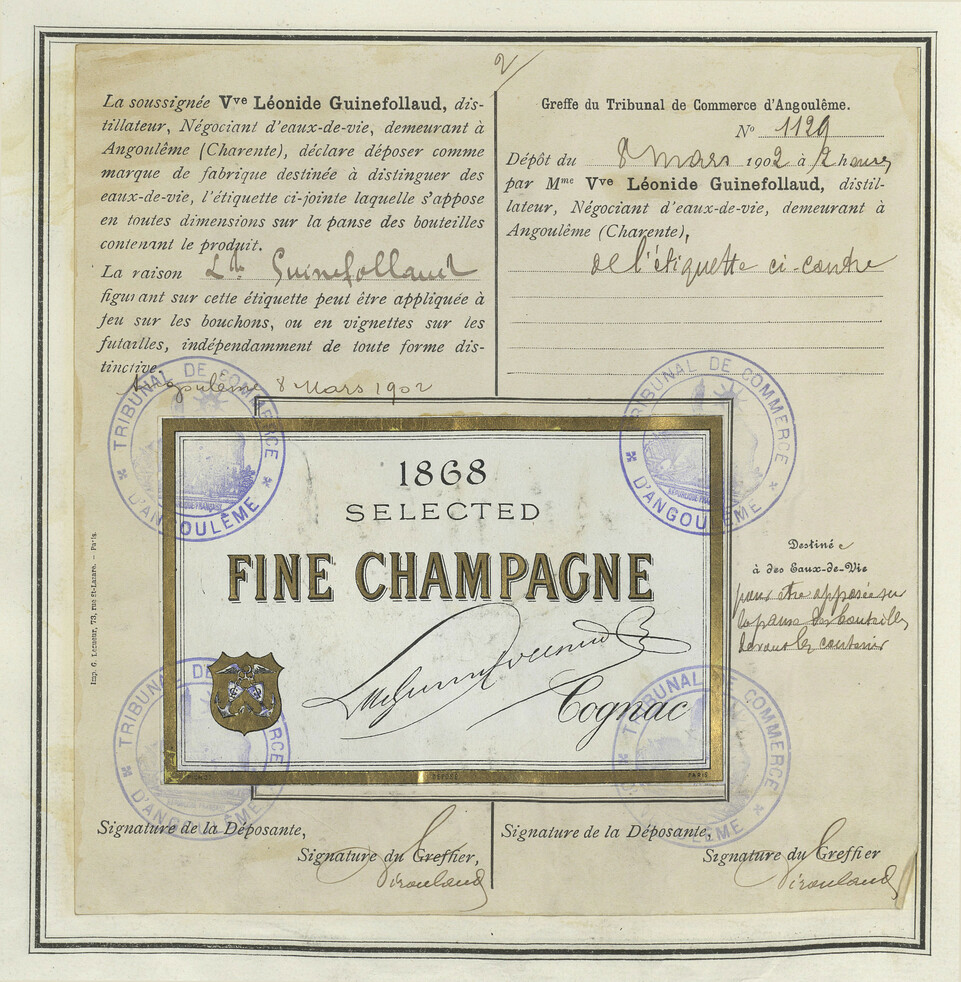 2
La soussignée Vve Léonide Guinefollaud, dis-
tillateur, Négociant d'eaux-de-vie, demeurant à
Angoulême (Charente), déclare déposer comme
marque de fabrique destinée à distinguer des
eaux-de-vie, l'étiquette ci-jointe laquelle s'appose
en toutes dimensions sur la panse des bouteilles
contenant le produit.
La raison Lde Guinefollaud
figurant sur cette étiquette peut être appliquée à
feu sur les bouchons, ou en vignettes sur les
futailles, indépendamment de toute forme dis-
tinctive.
Angoulême 8 Mars 1902
Greffe du Tribunal de Commerce d'Angoulême.
No 1129
Dépôt du 8 mars 1902 à 2 heures
par Mme Vve Léonide Guinefollaud, distil-
lateur, Négociant d'eaux-de-vie, demeurant à
Angoulême (Charente),
de l'étiquette ci-contre
TRIBUNAL DE COMMERCE D'ANGOULÊME
RÉPUBLIQUE FRANÇAISE
TRIBUNAL DE COMMERCE D'ANGOULÊME
RÉPUBLIQUE FRANÇAISE
1868
SELECTED
FINE CHAMPAGNE
Cognac
DÉPOSÉ
PARIS
Destinée
à des Eaux-de-Vie
pour être apposée sur
la panse des bouteilles
devant les contenir
Imp. G. Lemeur, 73, rue St-Lazare. - Paris.
TRIBUNAL DE COMMERCE D'ANGOULÊME
TRIBUNAL DE COMMERCE D'ANGOULÊME
Signature de la Déposante,
Signature du Greffier,
Signature de la Déposante,
Signature du Greffier